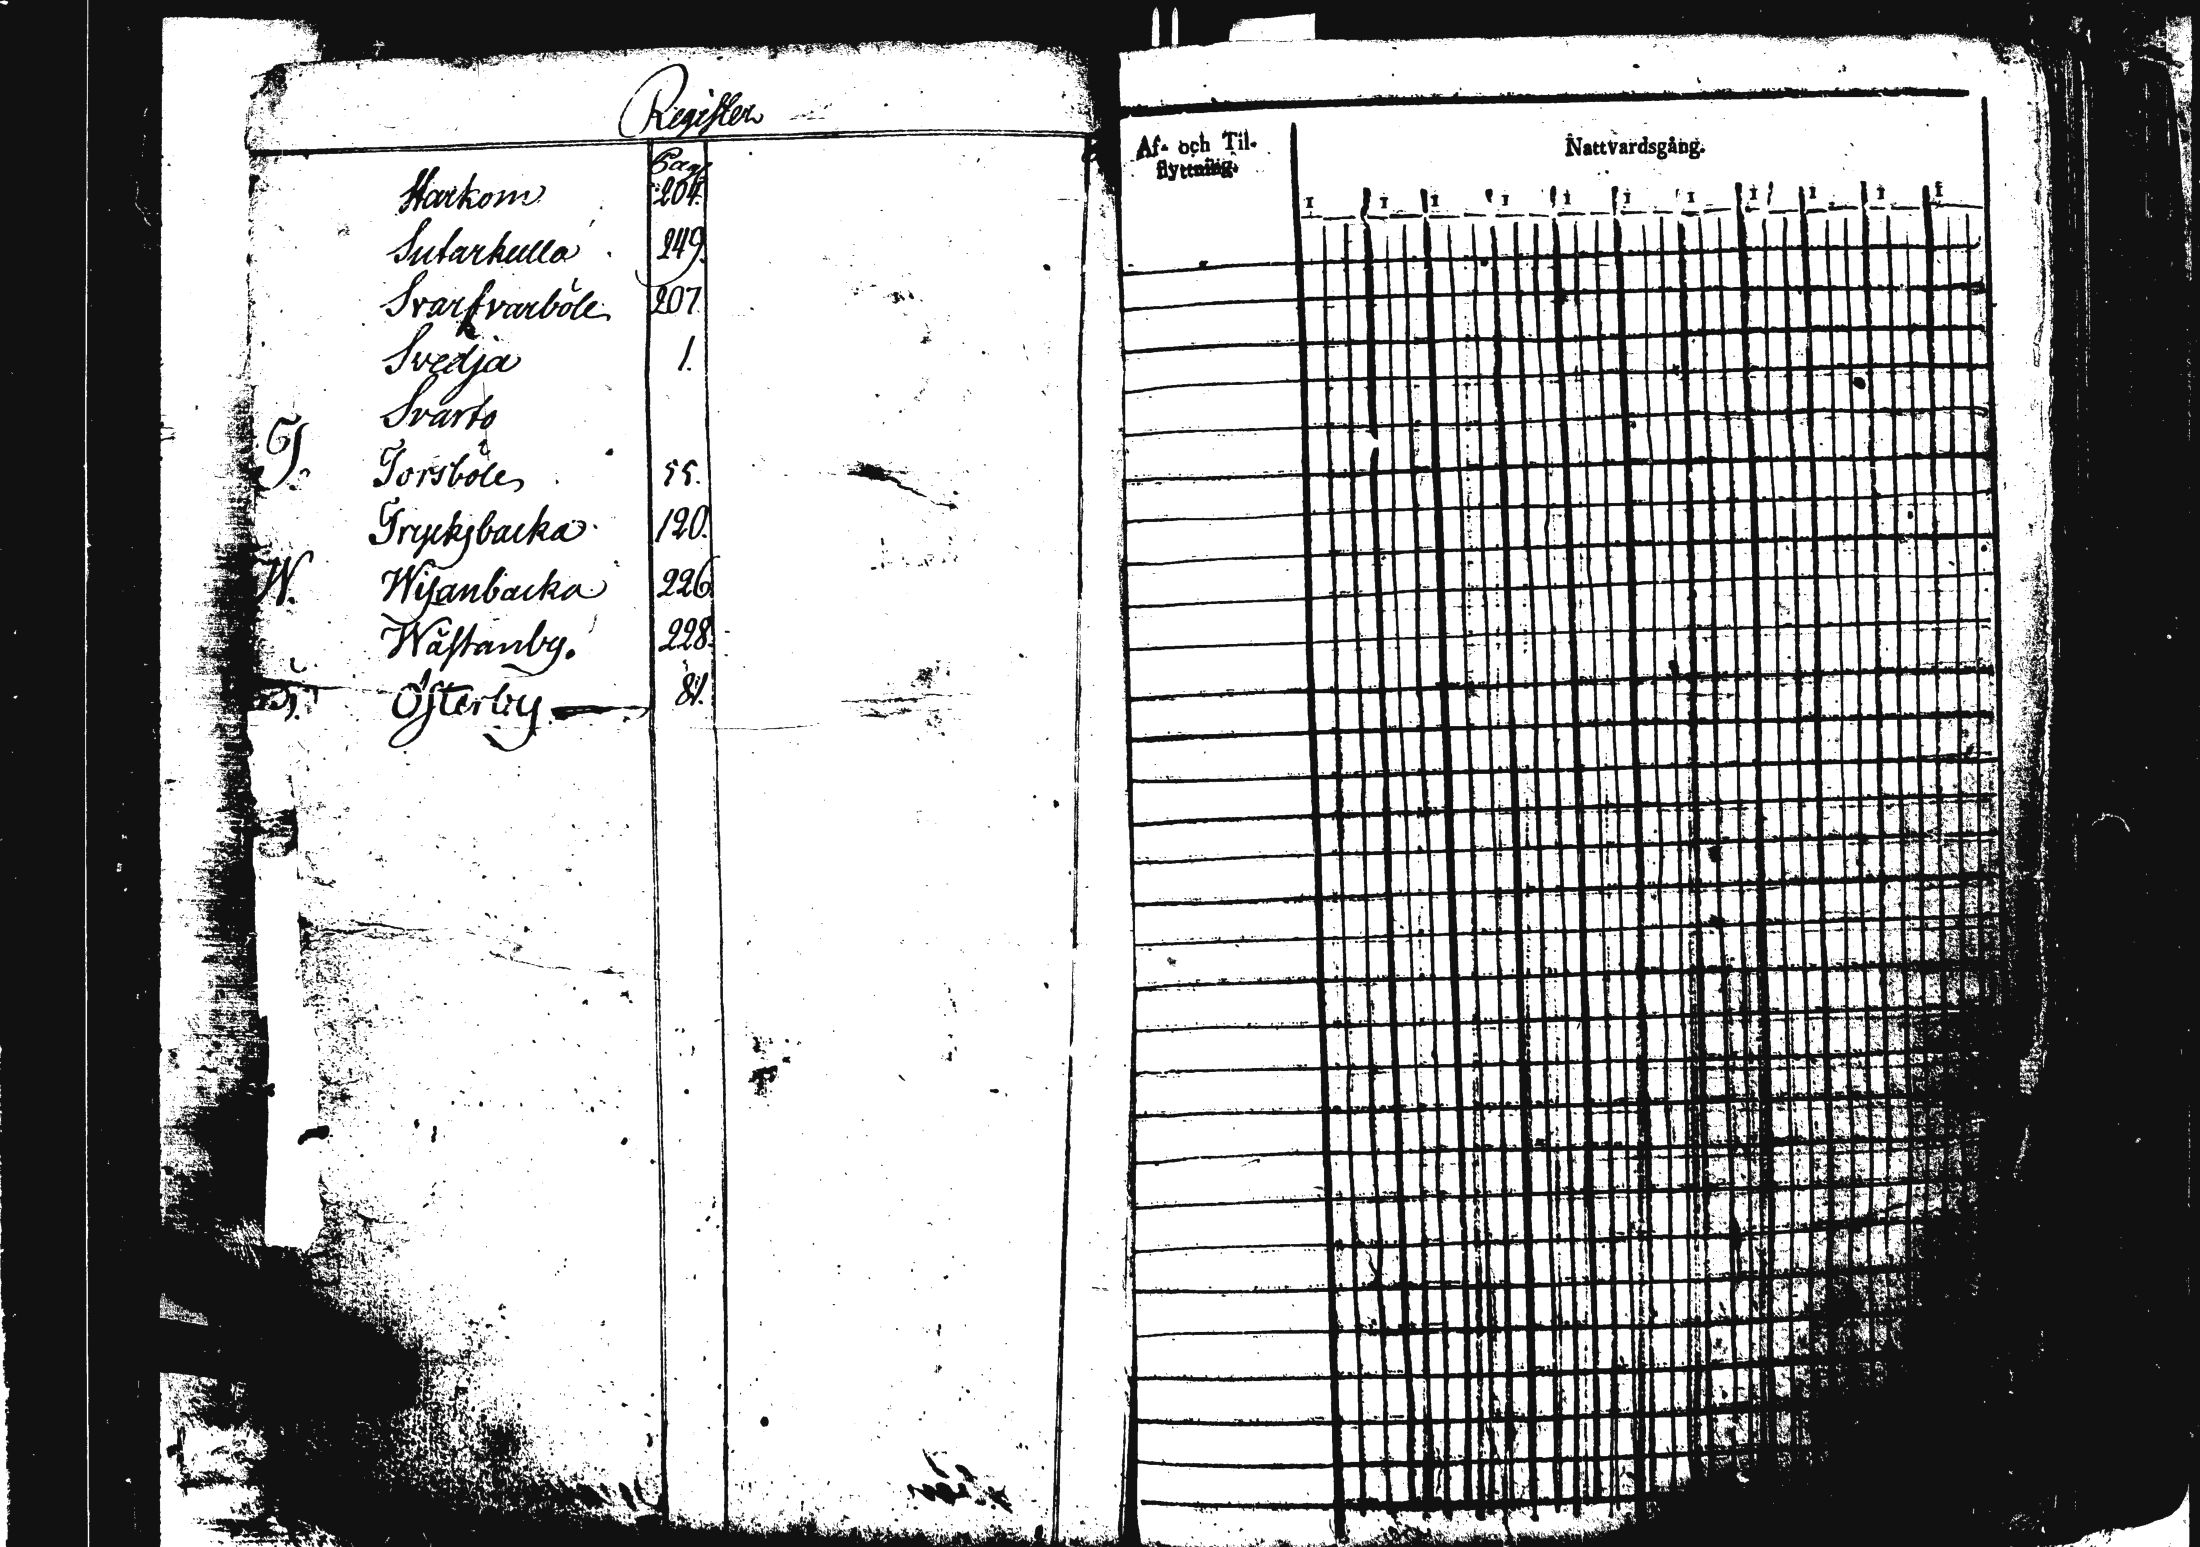 Register
Pag.
Starkom 204.
Sutarkulla 249.
Svartvarböle 207.
Svedja 1.
Svartö
T. Torsböle 55.
Trycksbacka 120.
W. Wisanbacka 226.
Wästanby. 228.
Ö. Österby 81.
Af- och Til-
flyttning.
Nattvardsgång.
1 1 1 1 1 1 1 1 1 1 1